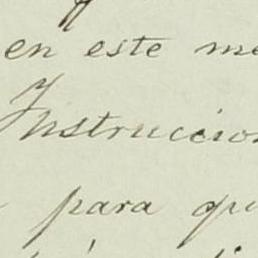 en este me
Instruccion
para qu